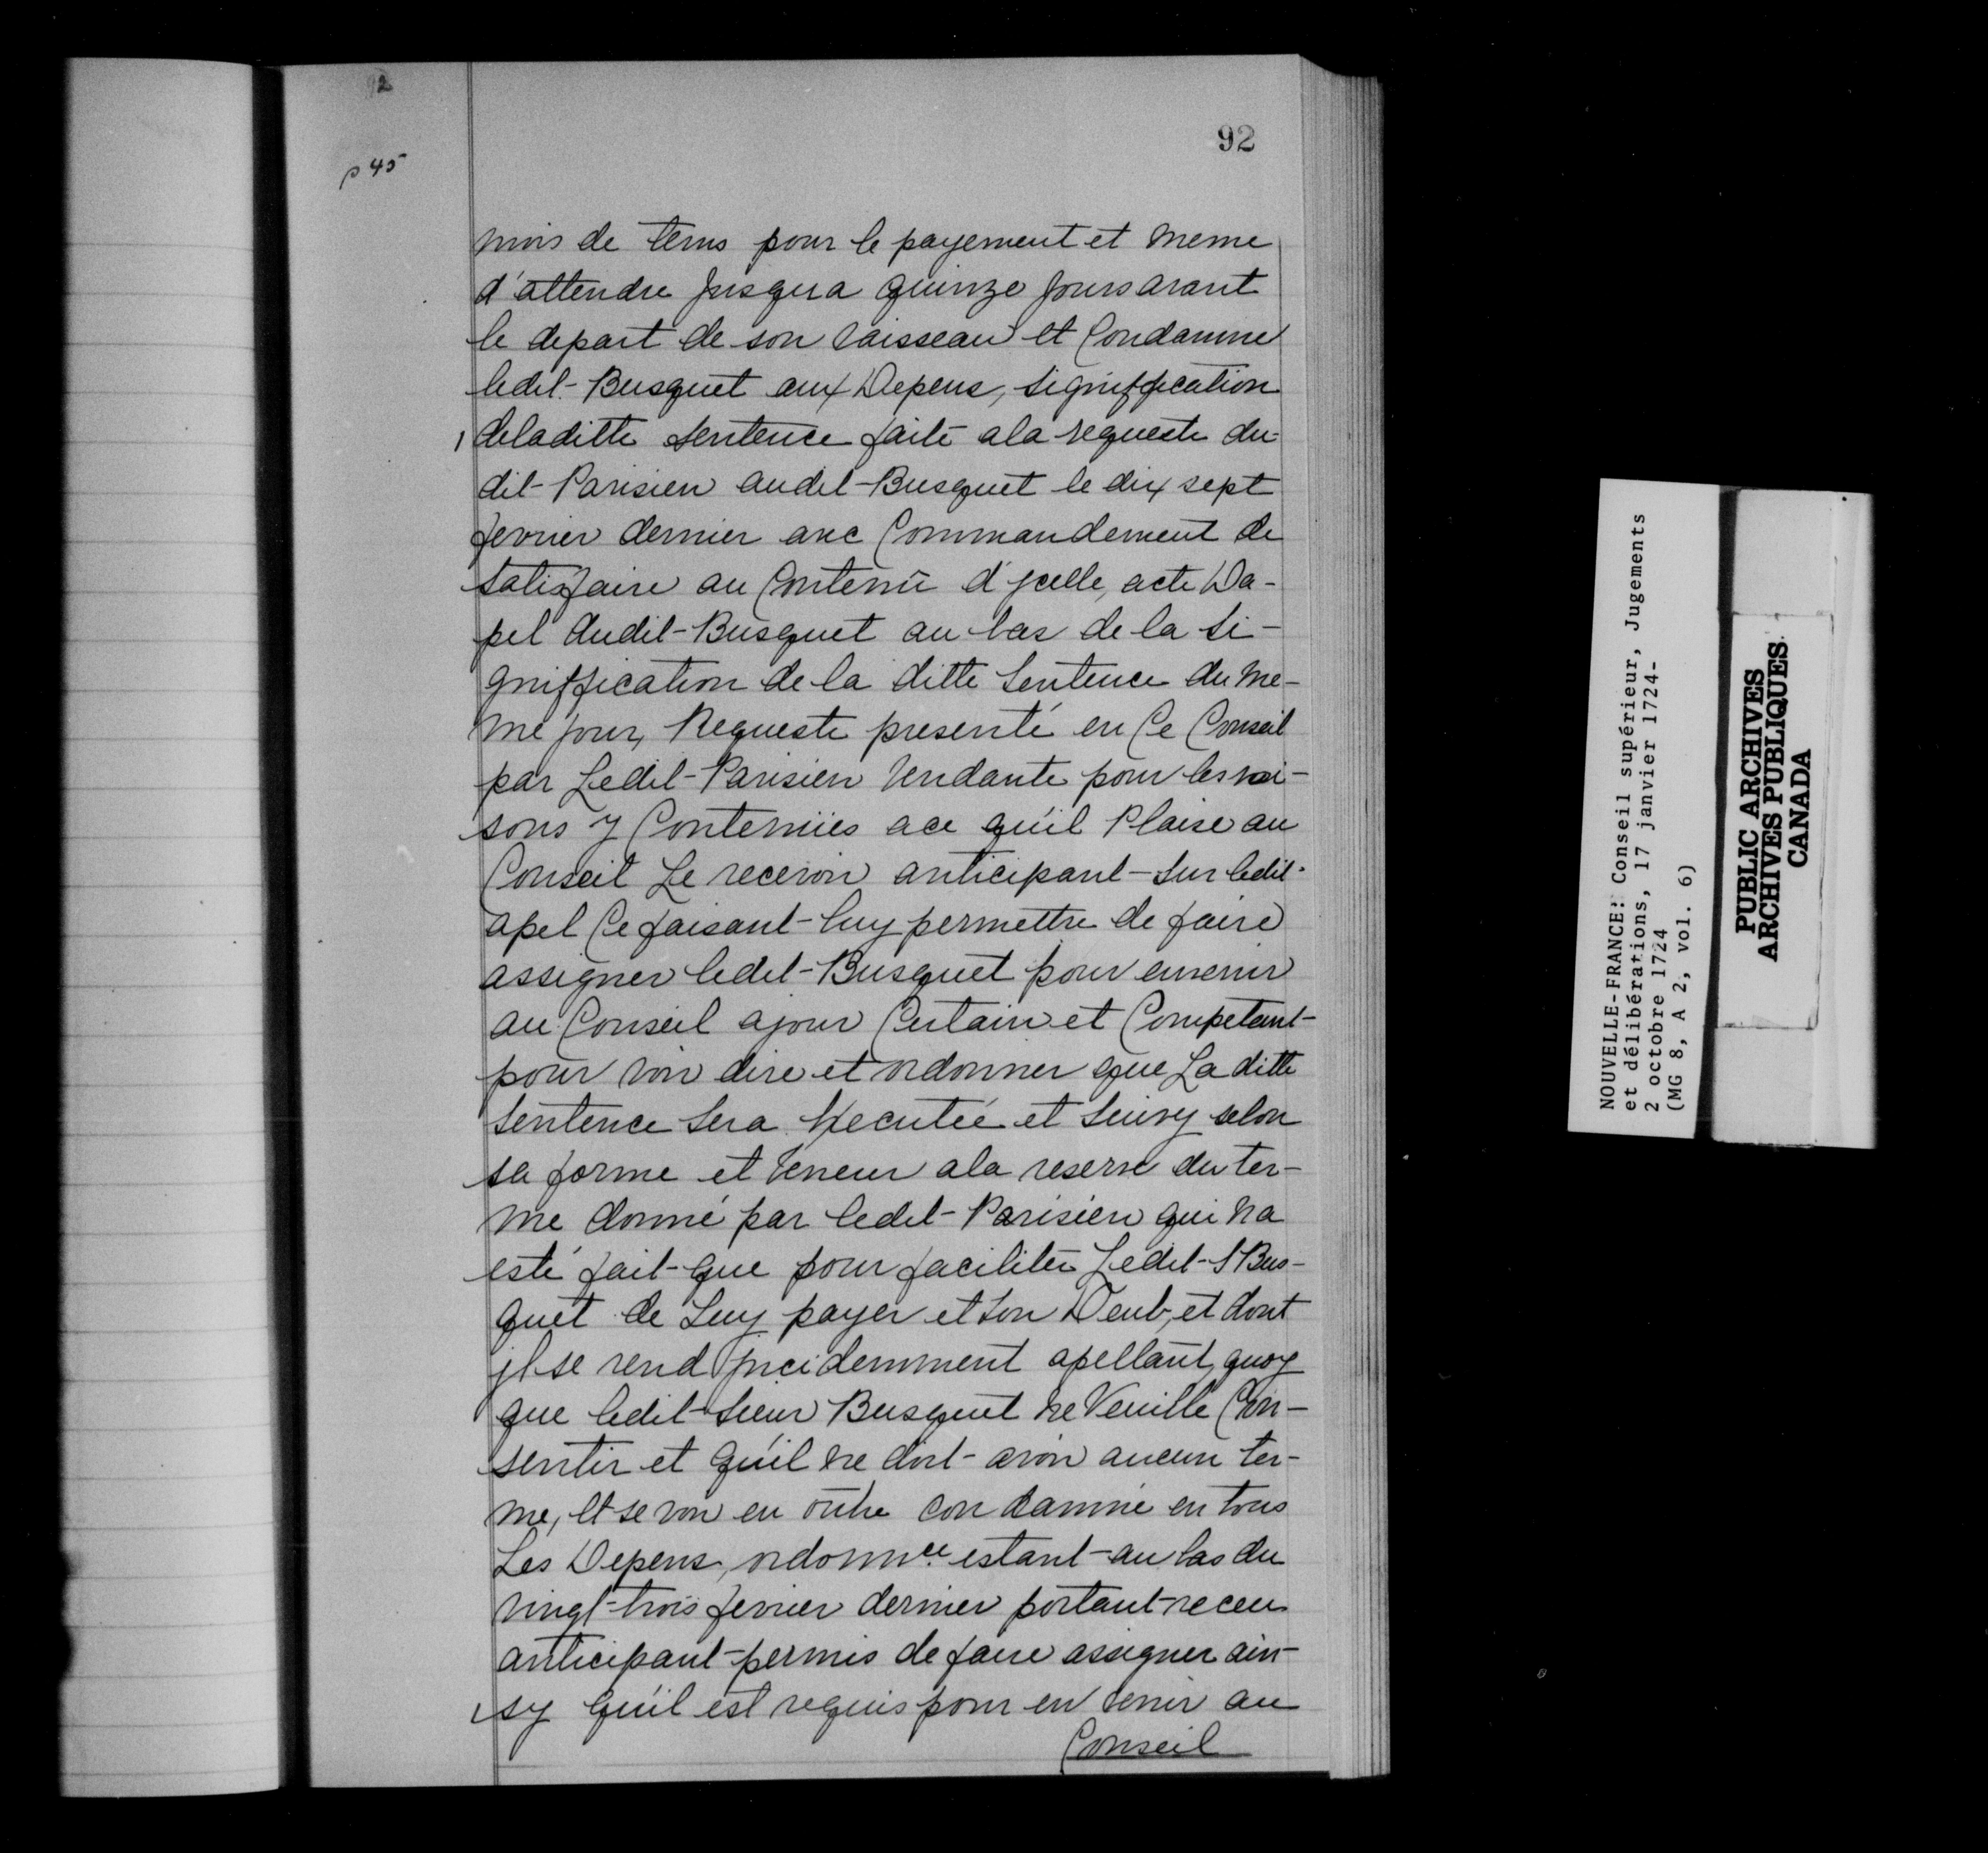 92
92
p 45
mois de tems pour le payement et meme
d'attendre Jusqua quinze Jours avant
le depart de son vaisseau et Condamne
ledit Busquet aux Depens, signiffication
deladitte sentence faite ala requeste du
dit Parisien audit Busquet le dix sept
fevrier dernier avec Commandement de
satisfaire au Contenu d'Jcelle, acte Da-
pel dudit Busquet au bas de la si-
gniffication de la ditte sentence du me-
me jour, Requeste presenté en Ce Conseil
par Ledit Parisien tendante pour les rai-
sons y Contenües ace qu'il Plaise au
Conseil Le recevoir anticipant sur ledit
apel Ce faisant luy permettre de faire
assigner ledit Busquet pour envenir
au Conseil ajour Certain et Competant
pour voir dire et ordonner que La ditte
sentence sera Executée et suivy selon
sa forme et teneur ala reserve du ter-
me donné par ledit Parisien qui na
esté fait que pour faciliter Ledit S Bus-
quet de Luy payer et son Deub, et dont
jl se rend Jncidemment apellant, quoy
que ledit sieur Busquet ne Veuille Con-
sentir et qu'il ne doit avoir aucun ter-
me, et se voir en outre con damné en tous
Les Depens, ordonnce estant au bas du
vingt trois fevrier dernier portant receu
anticipant permis de faire assigner ain-
sy qu'il est requis pour en venir au
Conseil
NOUVELLE-FRANCE: Conseil supérieur, Jugements
et délibérations, 17 janvier 1724-
2 octobre 1724
(MG 8, A 2, vol. 6)
PUBLIC ARCHIVES
ARCHIVES PUBLIQUES
CANADA